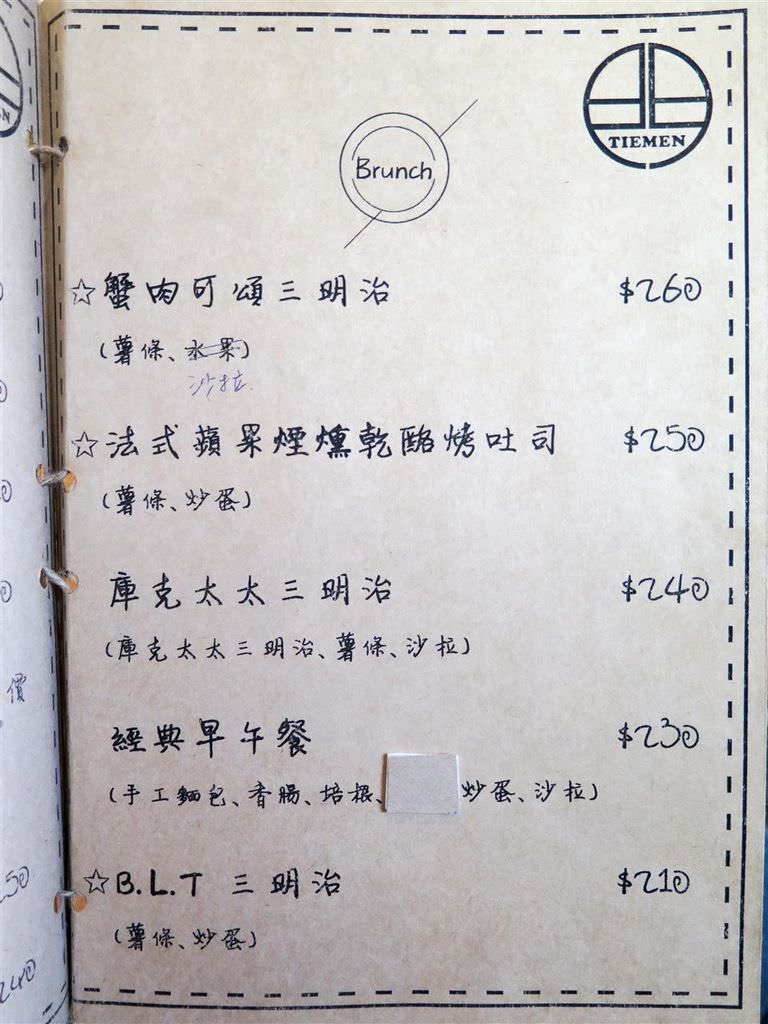 TIEMEN
Brunch
☆蟹肉可頌三明治 $260
(薯條、水果)
沙拉
☆法式蘋果煙燻乾酪烤吐司 $250
(薯條、炒蛋)
庫克太太三明治 $240
(庫克太太三明治、薯條、沙拉)
經典早午餐 $230
(手工麵包、香腸、培根、 炒蛋、沙拉)
☆B.L.T 三明治 $210
(薯條、炒蛋)
價
240